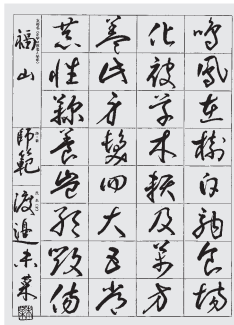 鳴鳳在樹白駒食場
化被草木頼及萬方
蓋此身髮四大五常
恭惟鞠養豈敢毀傷
福山 師範 渡邉未菜